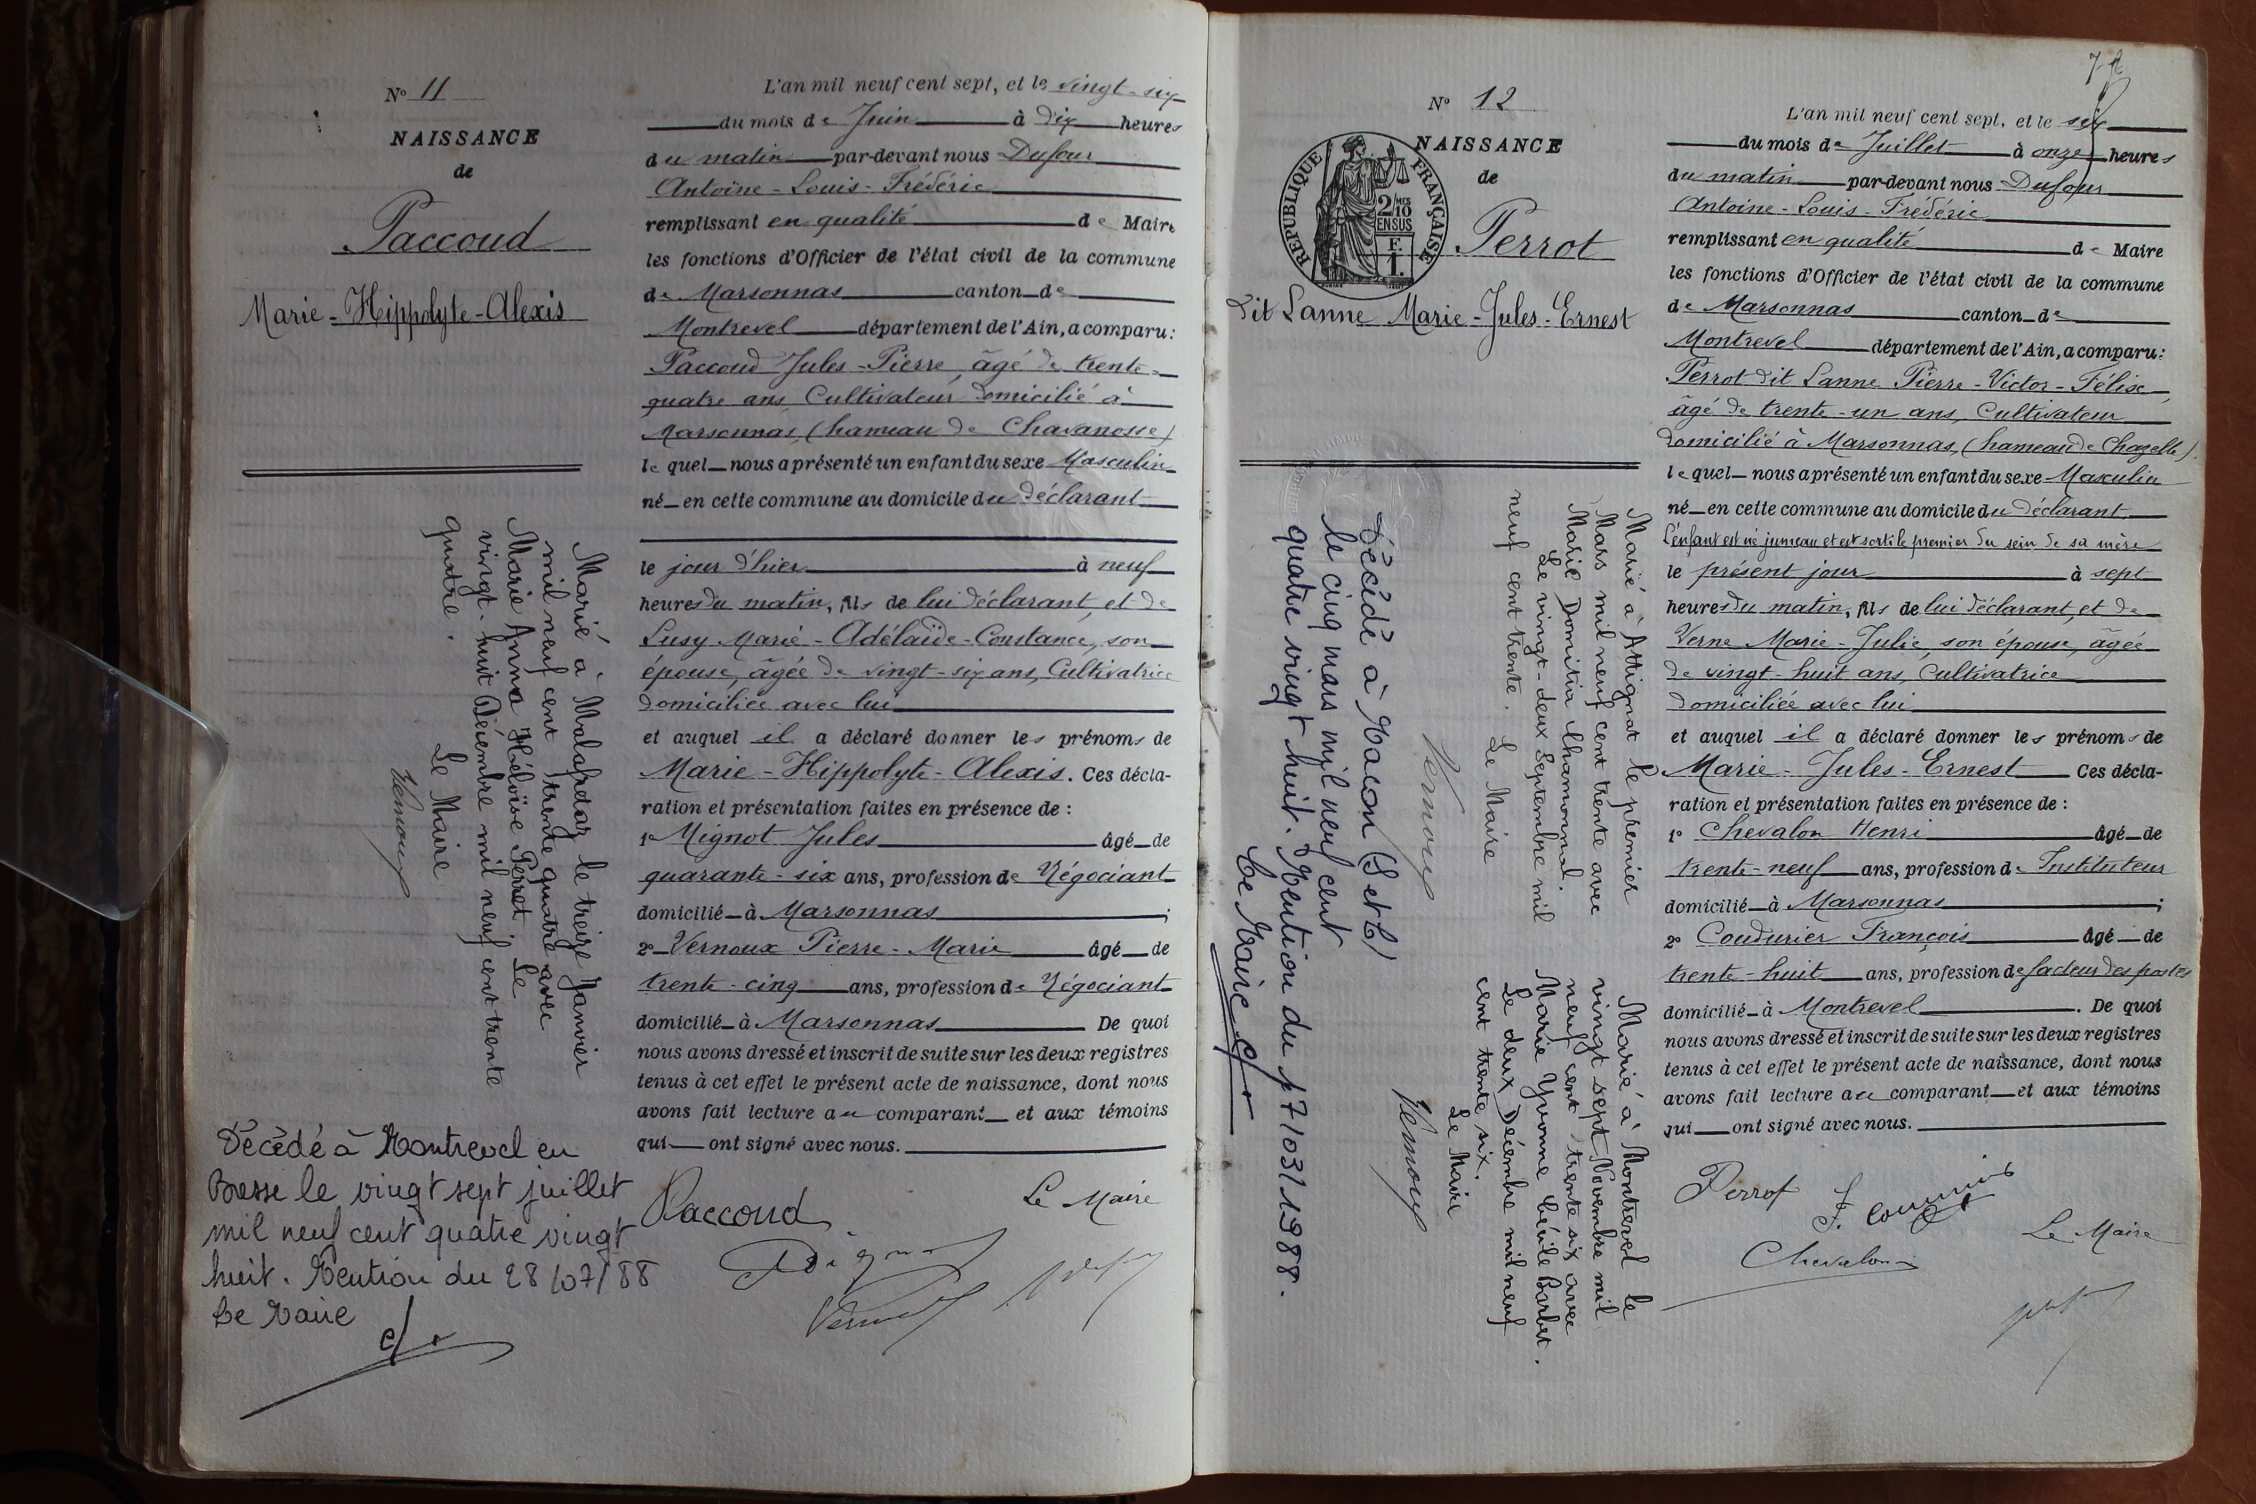 N° 11
NAISSANCE
de
Paccoud
Marie-Hippolyte-Alexis
Marié à Malafretaz le treize Janvier
mil neuf cent trente quatre avec
Marie Anna Héloïse Perret. Le
vingt-huit Décembre mil neuf cent trente
quatre.
Le Maire
Vernoux
Décédé à Montrevel en
Bresse le vingt sept juillet
mil neuf cent quatre vingt
huit. Mention du 28/07/88
Le Maire
L'an mil neuf cent sept, et le vingt-six
du mois de Juin à dix heures
du matin par-devant nous Dufour
Antoine-Louis-Frédéric
remplissant en qualité de Maire
les fonctions d'Officier de l'état civil de la commune
de Marsonnas canton de
Montrevel département de l'Ain, a comparu:
Paccoud Jules-Pierre, âgé de trente-
quatre ans, Cultivateur domicilié à
Marsonnas, (hameau de Chavanosse)
lequel nous a présenté un enfant du sexe Masculin
né en cette commune au domicile du déclarant
le jour d'hier à neuf
heures du matin, fils de lui déclarant, et de
Lusy Marie-Adélaïde-Constance, son
épouse, âgée de vingt-six ans, Cultivatrice
domiciliée avec lui
et auquel il a déclaré donner les prénoms de
Marie-Hippolyte-Alexis. Ces décla-
ration et présentation faites en présence de :
1° Mignot Jules âgé de
quarante-six ans, profession de Négociant
domicilié à Marsonnas ;
2° Vernoux Pierre-Marie âgé de
trente-cinq ans, profession de Négociant
domicilié à Marsonnas De quoi
nous avons dressé et inscrit de suite sur les deux registres
tenus à cet effet le présent acte de naissance, dont nous
avons fait lecture au comparant et aux témoins
qui ont signé avec nous.
Paccoud
Le Maire
N° 12
NAISSANCE
de
RÉPUBLIQUE FRANÇAISE
2/10 MES
EN SUS
F.
1.
Perrot
dit Lanne Marie-Jules-Ernest
Marié à Attignat le premier
Mars mil neuf cent trente avec
Marie Domitia Chamonnal.
Le vingt-deux Septembre mil
neuf cent trente. Le Maire
Vernoux
Décédé à Macon (S et L)
le cinq mars mil neuf cent
quatre vingt huit. Mention du 17/03/1988.
Le Maire
Marié à Montrevel le
vingt sept Novembre mil
neuf cent trente six avec
Marie Yvonne Cécile Barbet.
Le deux Décembre mil neuf
cent trente six.
Le Maire
Vernoux
L'an mil neuf cent sept, et le six
du mois de Juillet à onze heures
du matin par-devant nous Dufour
Antoine-Louis-Frédéric
remplissant en qualité de Maire
les fonctions d'Officier de l'état civil de la commune
de Marsonnas canton de
Montrevel département de l'Ain, a comparu:
Perrot dit Lanne Pierre-Victor-Félix,
âgé de trente-un ans, Cultivateur
domicilié à Marsonnas, (hameau de Chazelle)
lequel nous a présenté un enfant du sexe Masculin
né en cette commune au domicile du déclarant
L'enfant est né jumeau et est sorti le premier du sein de sa mère
le présent jour à sept
heures du matin, fils de lui déclarant, et de
Verne Marie-Julie, son épouse, âgée
de vingt-huit ans, Cultivatrice
domiciliée avec lui
et auquel il a déclaré donner les prénoms de
Marie-Jules-Ernest Ces décla-
ration et présentation faites en présence de :
1° Chevalon Henri âgé de
trente-neuf ans, profession de Instituteur
domicilié à Marsonnas ;
2° Coudurier François âgé de
trente-huit ans, profession de facteur des postes
domicilié à Montrevel. De quoi
nous avons dressé et inscrit de suite sur les deux registres
tenus à cet effet le présent acte de naissance, dont nous
avons fait lecture au comparant et aux témoins
qui ont signé avec nous.
Perrot
Chevalon
Le Maire